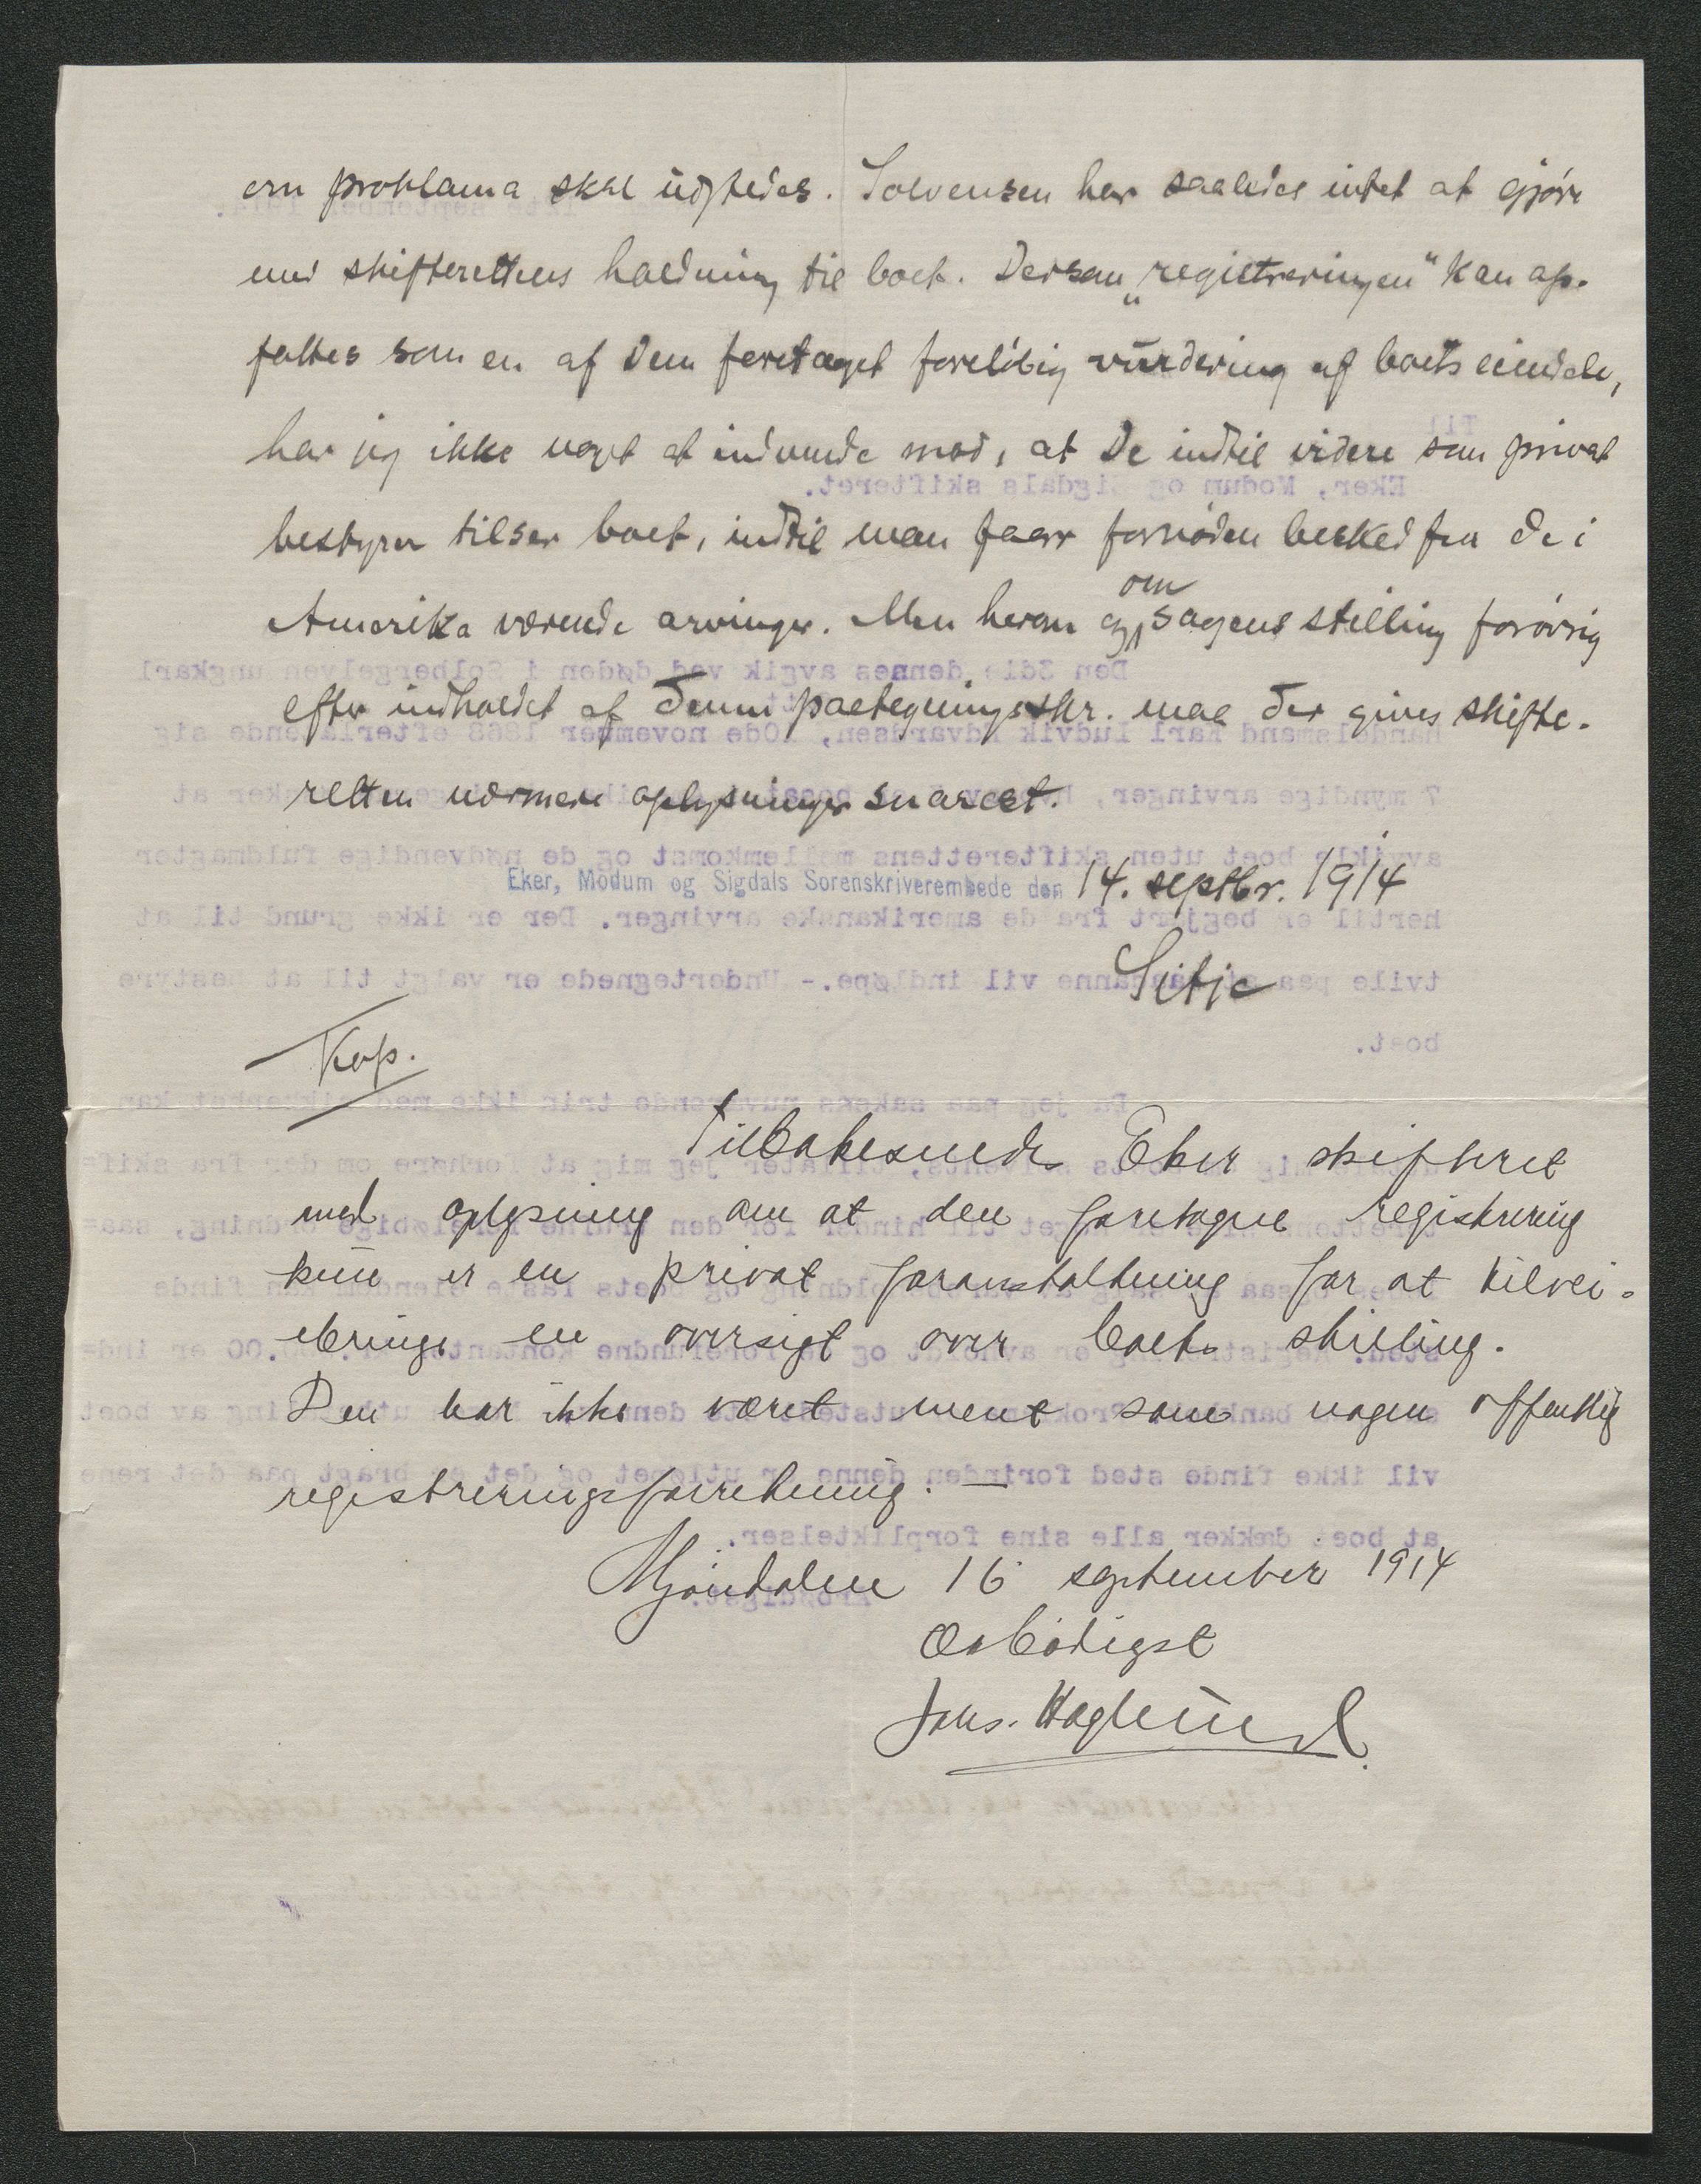 om proklama skal udstedes. Solvensen har saaledes intet at gjøre
med skifterettens holdning til boet. Dersom „registreringen“ kan op-
fattes som en af Dem foretaget foreløbig vürdering af boets eiendele,
har jeg ikke noget at indvende mod, at De indtil videre som privat
bestyrer tilser boet, indtil man faar fornøden besked fra de i
Amerika værende arvinger. Men herom og om sagens stilling forøvrig
efter indholdet af denne paategningsskr. maa der gives skifte-
retten nærmere oplysninger snarest.
Eker, Modum og Sigdals Sorenskriverembede den 14. septbr. 1914
Kop.
Tilbakesendes Eker skifteret
med oplysning om at den foretagne registrering
kun er en privat foranstaltning for at tilvei-
ebringe en oversigt over boets stilling.
Den har ikke været ment som nogen offentlig
registreringsforretning. —
Mjøndalen 16 september 1914
Ærbødigst
Johs. Haglund